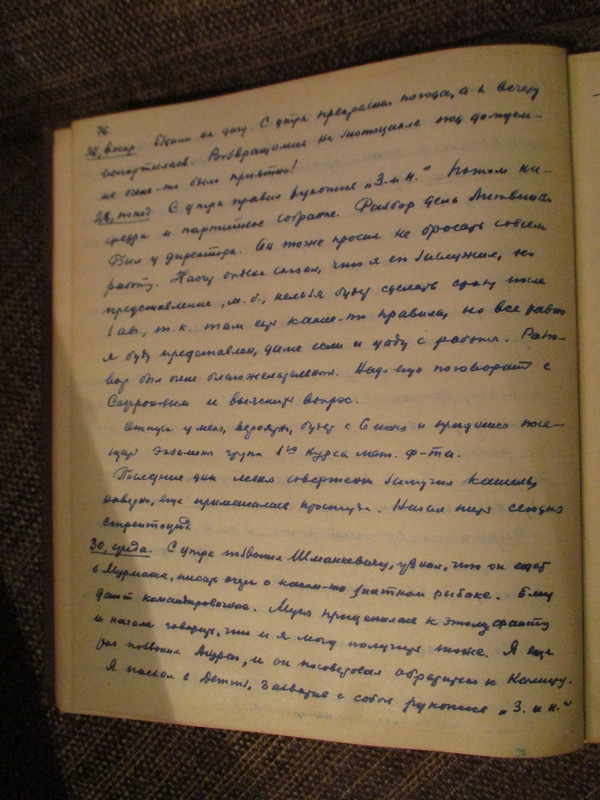 76.
27, воскр. Ездили на дачу. С утра прекрасная погода, а к вечеру
испортилась. Возвращались на мотоцикле под дождем –
не очень-то было приятно!
С утра правил рукопись „З. и н." Потом ка-
федра и партийное собрание. Разбор дела Литвинова
Был у директора. Он тоже просил не бросать совсем
работу. Насчет сказал, что я его заслужил, но
представление, м. б., нельзя будет сделать сразу после
1 авг., т. к. там еще какие-то правила, но все равно
я буду представлен, даже если и уйду с работы. Разго-
вор был очень благожелательный. Надо еще поговорить с
и выяснить вопрос.
Отпуск у меня, вероятно, будет с 6 июля и придется
экзамен групп 1го курса мат. ф-та.
Последние дни меня совершенно замучил кашель,
наверно, еще примешалась простуда. Начал пить сегодня
стрептоцид.
30, среда. С утра позвонил Шманкевичу, узнал, что он едет
в Мурманск, писать очерк о каком-то знатном рыбаке. Ему
дают командировочные. Муся прицепилась к этому факту
и начала говорить, что и я могу получить тоже. Я еще
раз позвонил и он посоветовал обратиться к
Я поехал в Детгиз, захватив с собой рукопись „З. и н."